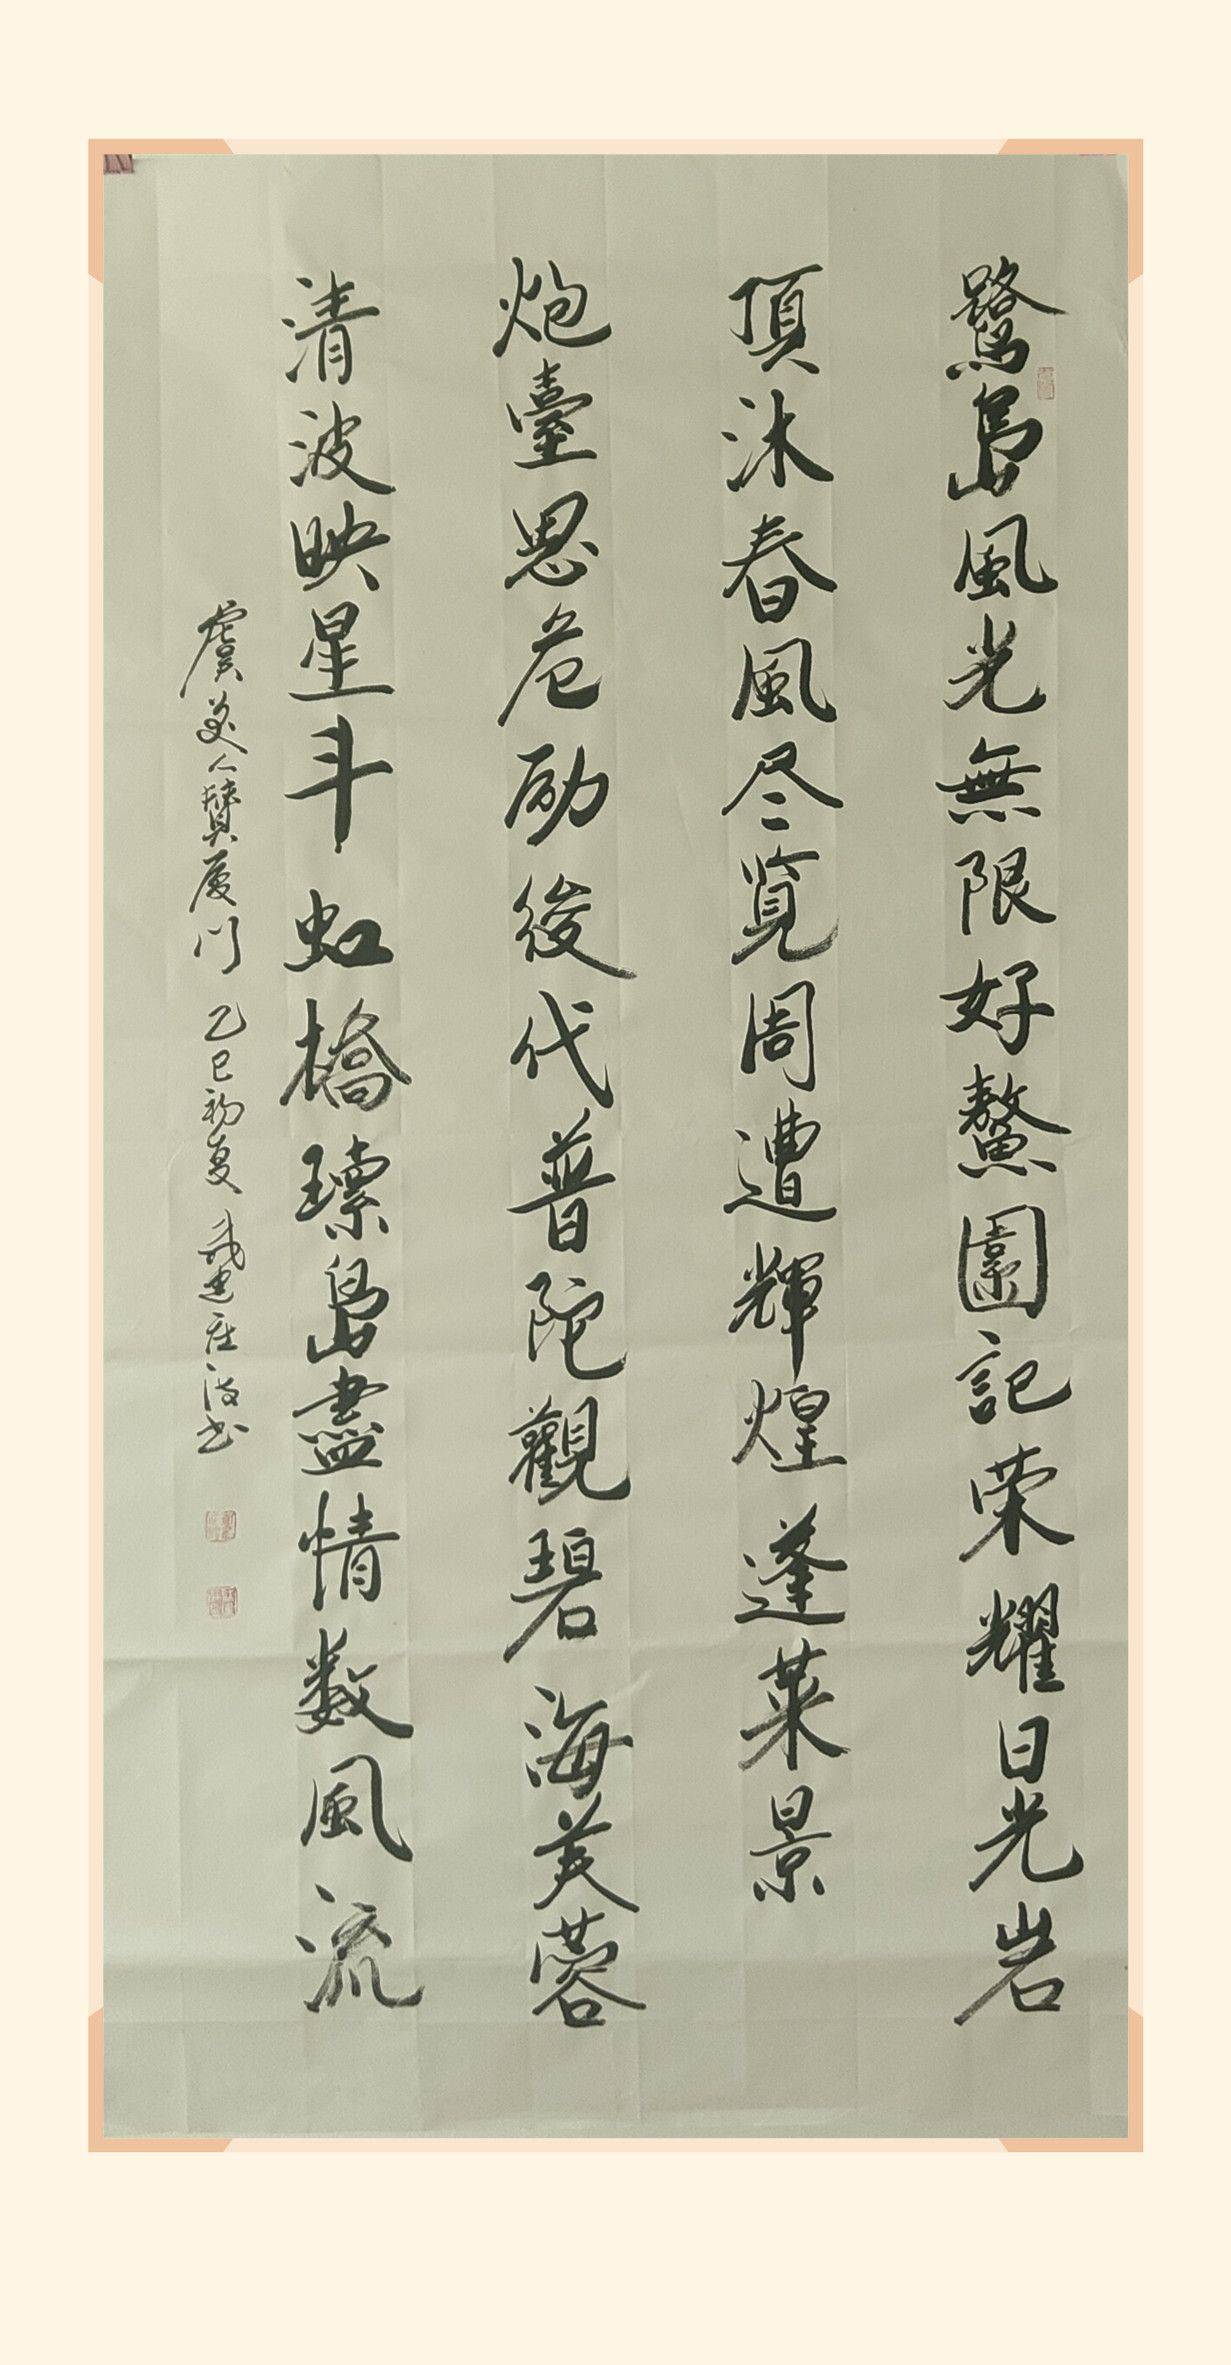 鷺島風光無限好鰲園記荣耀日光岩
頂沐春風尽覧周遭輝煌蓬莱景
炮臺思危励後代普陀觀碧海芙蓉
清波映星斗虹橋瓌島盡情数風流
虞美人赞厦门 乙巳初夏 建在波书